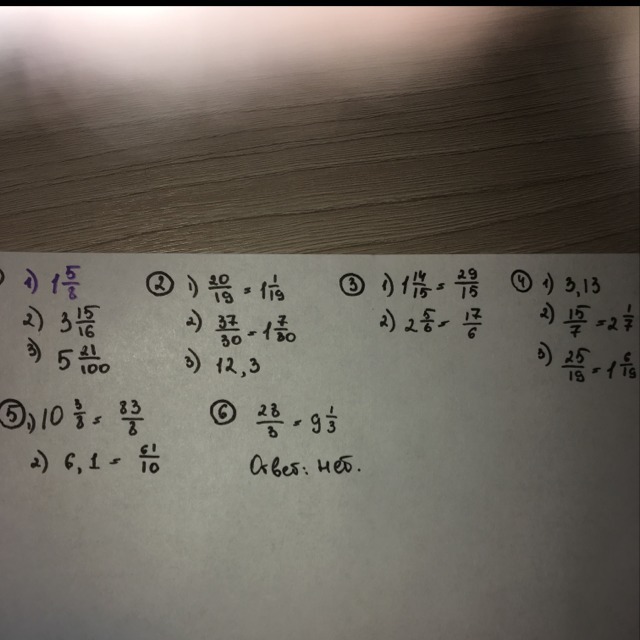 1) 1 5/8
2) 3 15/16
3) 5 21/100
② 1) 20/19 = 1 1/19
2) 37/30 = 1 7/30
3) 12,3
③ 1) 1 14/15 = 29/15
2) 2 5/6 = 17/6
④ 1) 3,13
2) 15/7 = 2 1/7
3) 25/19 = 1 6/19
⑤ 1) 10 3/8 = 83/8
2) 6,1 = 61/10
⑥ 28/3 = 9 1/3
Ответ: нет.